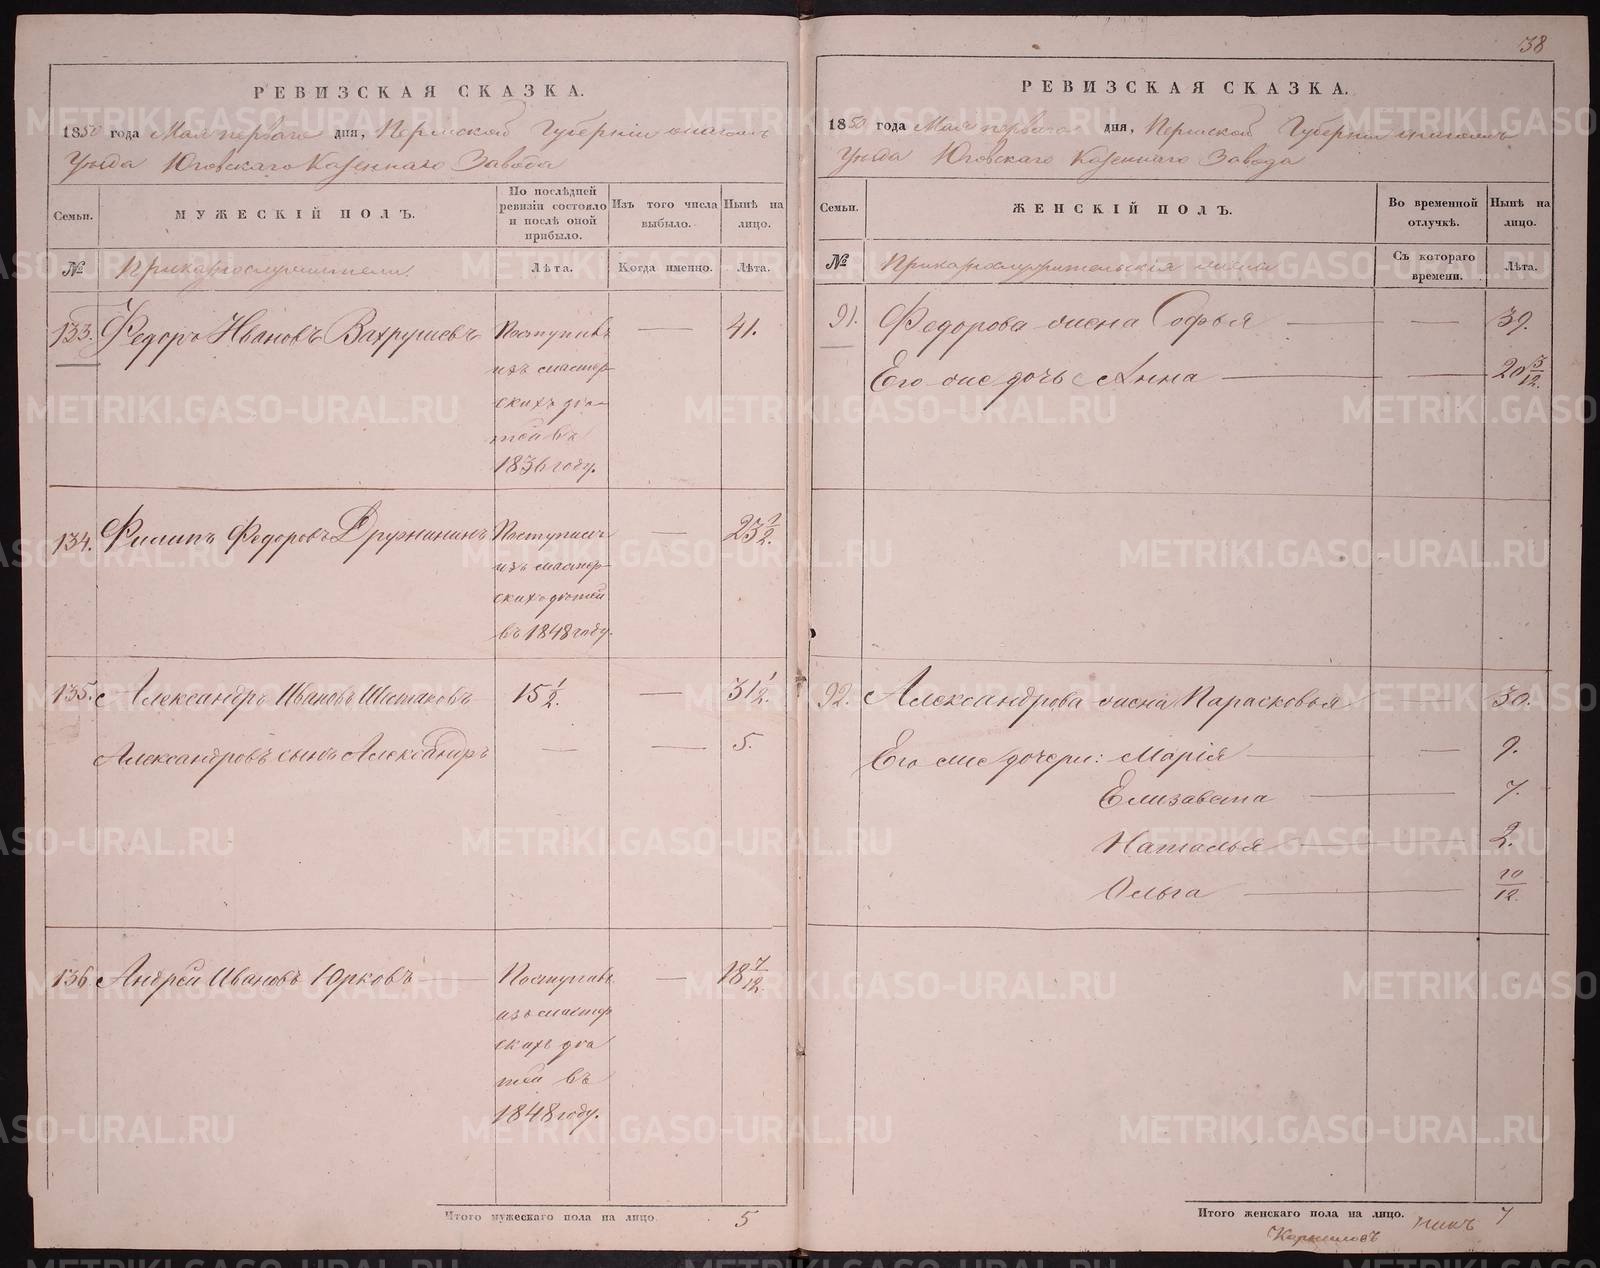 38
РЕВИЗСКАЯ СКАЗКА.
1850 года Мая перваго дня, Пермской Губерніи
Уѣзда Юговскаго Казеннаго Завода
Семьи.
МУЖЕСКІЙ ПОЛЪ.
По послѣдней ревизіи состояло и послѣ оной прибыло.
Изъ того числа выбыло.
Нынѣ на лицо.
№
Лѣта.
Когда именно.
Лѣта.
133. Федоръ Ивановъ Вахрушевъ Поступилъ — 41.
изъ мастер-
скихъ дѣ-
тей въ
1836 году.
134. Филипъ Федоровъ Дружининъ Поступилъ — 23 1/2.
изъ мастер-
скихъ дѣтей
въ 1848 году.
135. Александръ Ивановъ Шестаковъ 15 1/2. — 31 1/2.
Александровъ сынъ Александръ — — 5.
136 Андрей Ивановъ Юрковъ Поступилъ — 18 7/12.
изъ мастер
скихъ дѣ
тей въ
1848 году.
Итого мужескаго пола на лицо 5
РЕВИЗСКАЯ СКАЗКА.
1850 года Мая перваго дня, Пермской Губерніи
Уѣзда Юговскаго Казеннаго Завода
Семьи.
ЖЕНСКІЙ ПОЛЪ.
Во временной отлучкѣ.
Нынѣ на лицо.
№
Съ котораго времени.
Лѣта.
91. Федорова жена Софья — — 39.
Его же дочь Анна — — 20 3/12.
92. Александрова жена Парасковья — 30.
Его же дочери: Марія — — 9.
Елизавета — 7.
Наталья — 2.
Ольга — 10/12.
Итого женскаго пола на лицо. 7